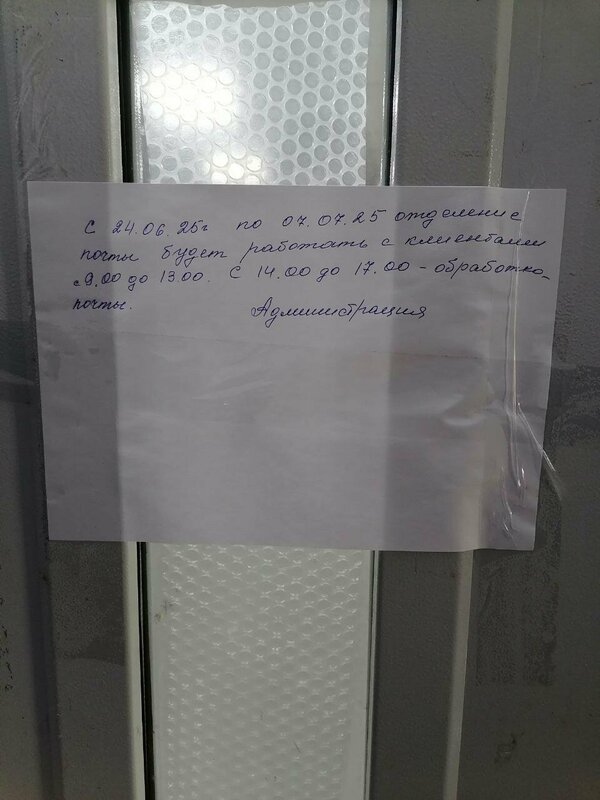 С 24.06.25г по 07.07.25 отделение
почты будет работать с клиентами
с 9.00 до 13.00. С 14.00 до 17.00 - обработка
почты. Администрация